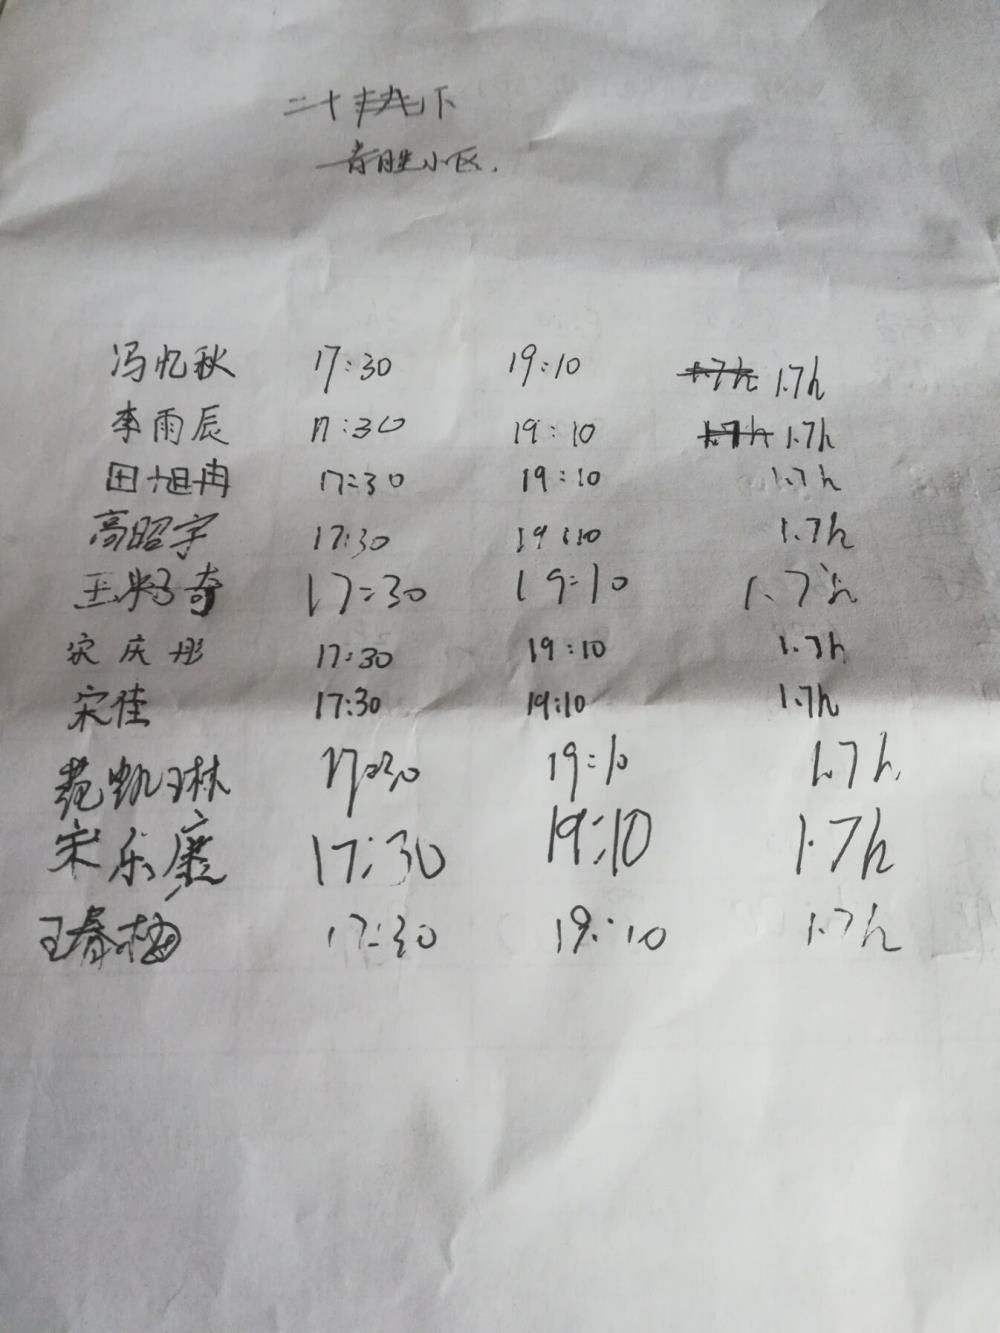 二十
小区.
冯忆秋 17:30 19:10 1.7h 1.7h
李雨辰 17:30 19:10 1.7h 1.7h
田旭冉 17:30 19:10 1.7h
高昭宇 17:30 19:10 1.7h
王 奇 17:30 19:10 1.7h
宋庆彤 17:30 19:10 1.7h
宋佳 17:30 19:10 1.7h
范凯琳 17:30 19:10 1.7h
宋乐 17:30 19:10 1.7h
王春梅 17:30 19:10 1.7h